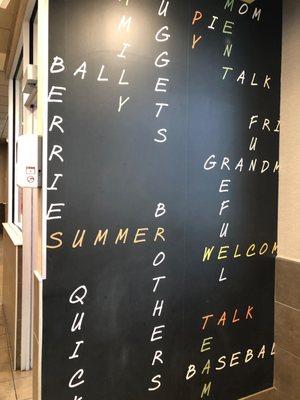 MILY
UGGETS
PIE
PY
MOM
MENT
BALL
BERRIES
TALK
FRI
FUN
GRANDM
REFUEL
SUMMER
BROTHERS
WELCOM
QUICK
TALK
TEAM
BASEBAL